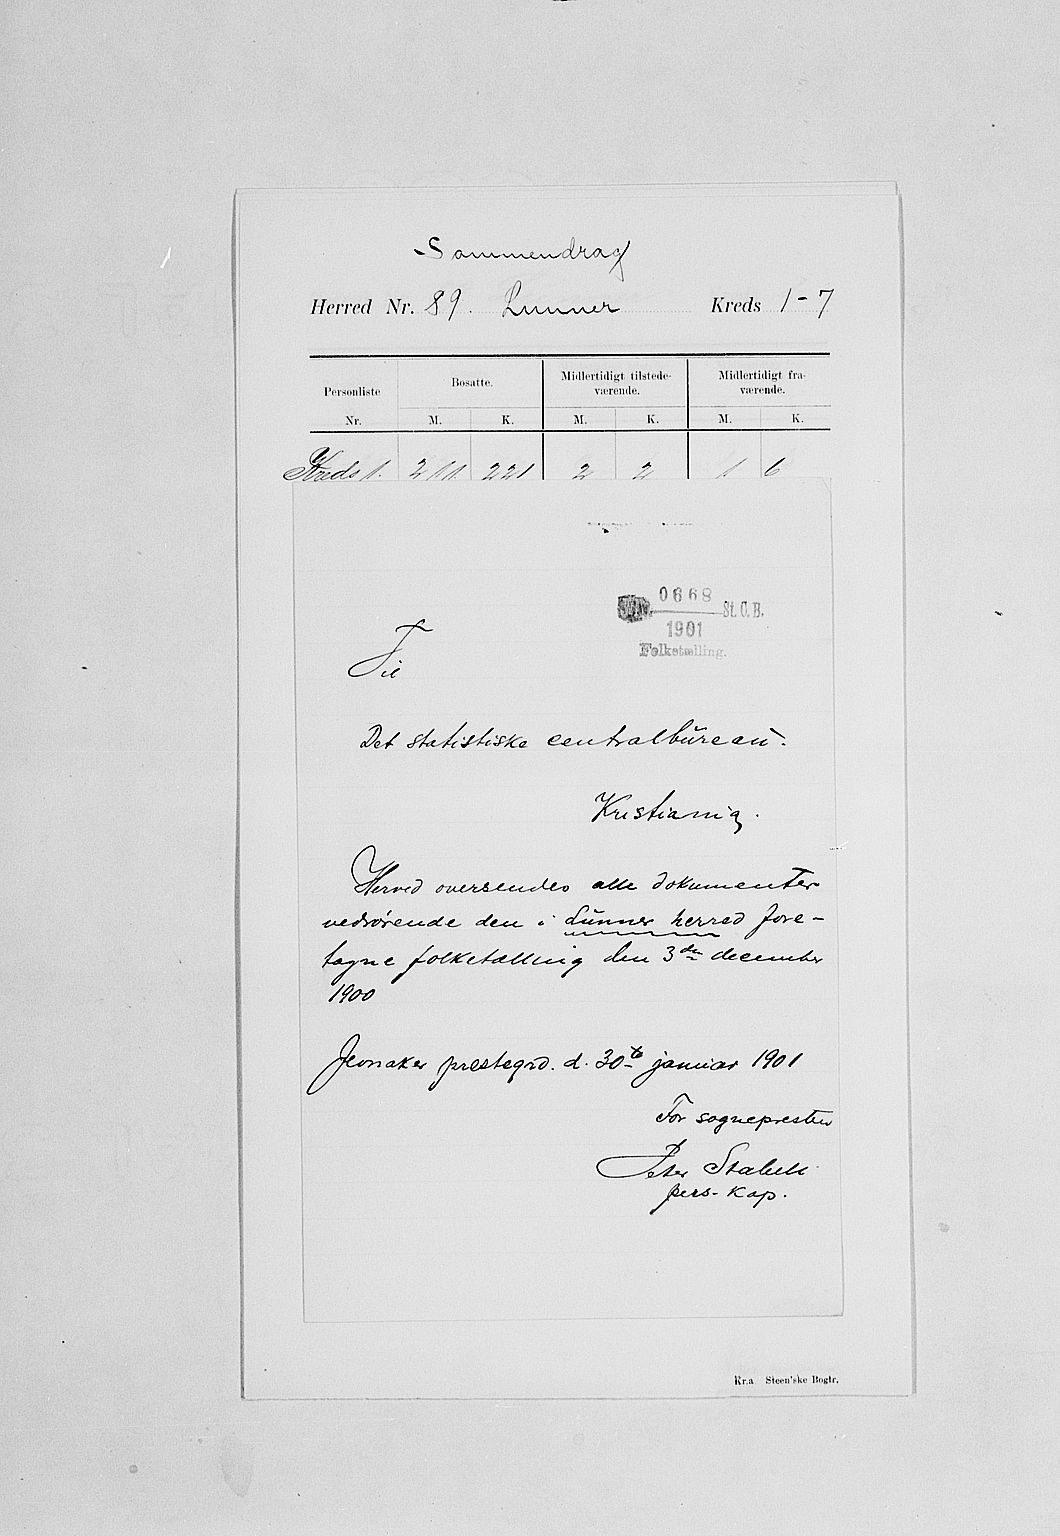 Sammendrag
Herred Nr. 89. Lunner Kreds 1-7
Personliste Bosatte. Midlertidigt tilstede- Midlertidigt fra-
værende. værende.
Nr. M. K. M. K. M. K.
Kreds 1. 211 221 2 2 1 6
0668
St. C. B.
1901
Folketælling.
Til
Det statistiske centralbureau.
Kristiania.
Herved oversendes alle dokumenter
vedrørende den i Lunner herred fore-
tagne folketælling den 3de december
1900
Jevnaker prestegrd. d. 30te januar 1901
For sognepresten
Peter Stabell
pers. kap.
Kr.a Steen'ske Bogtr.